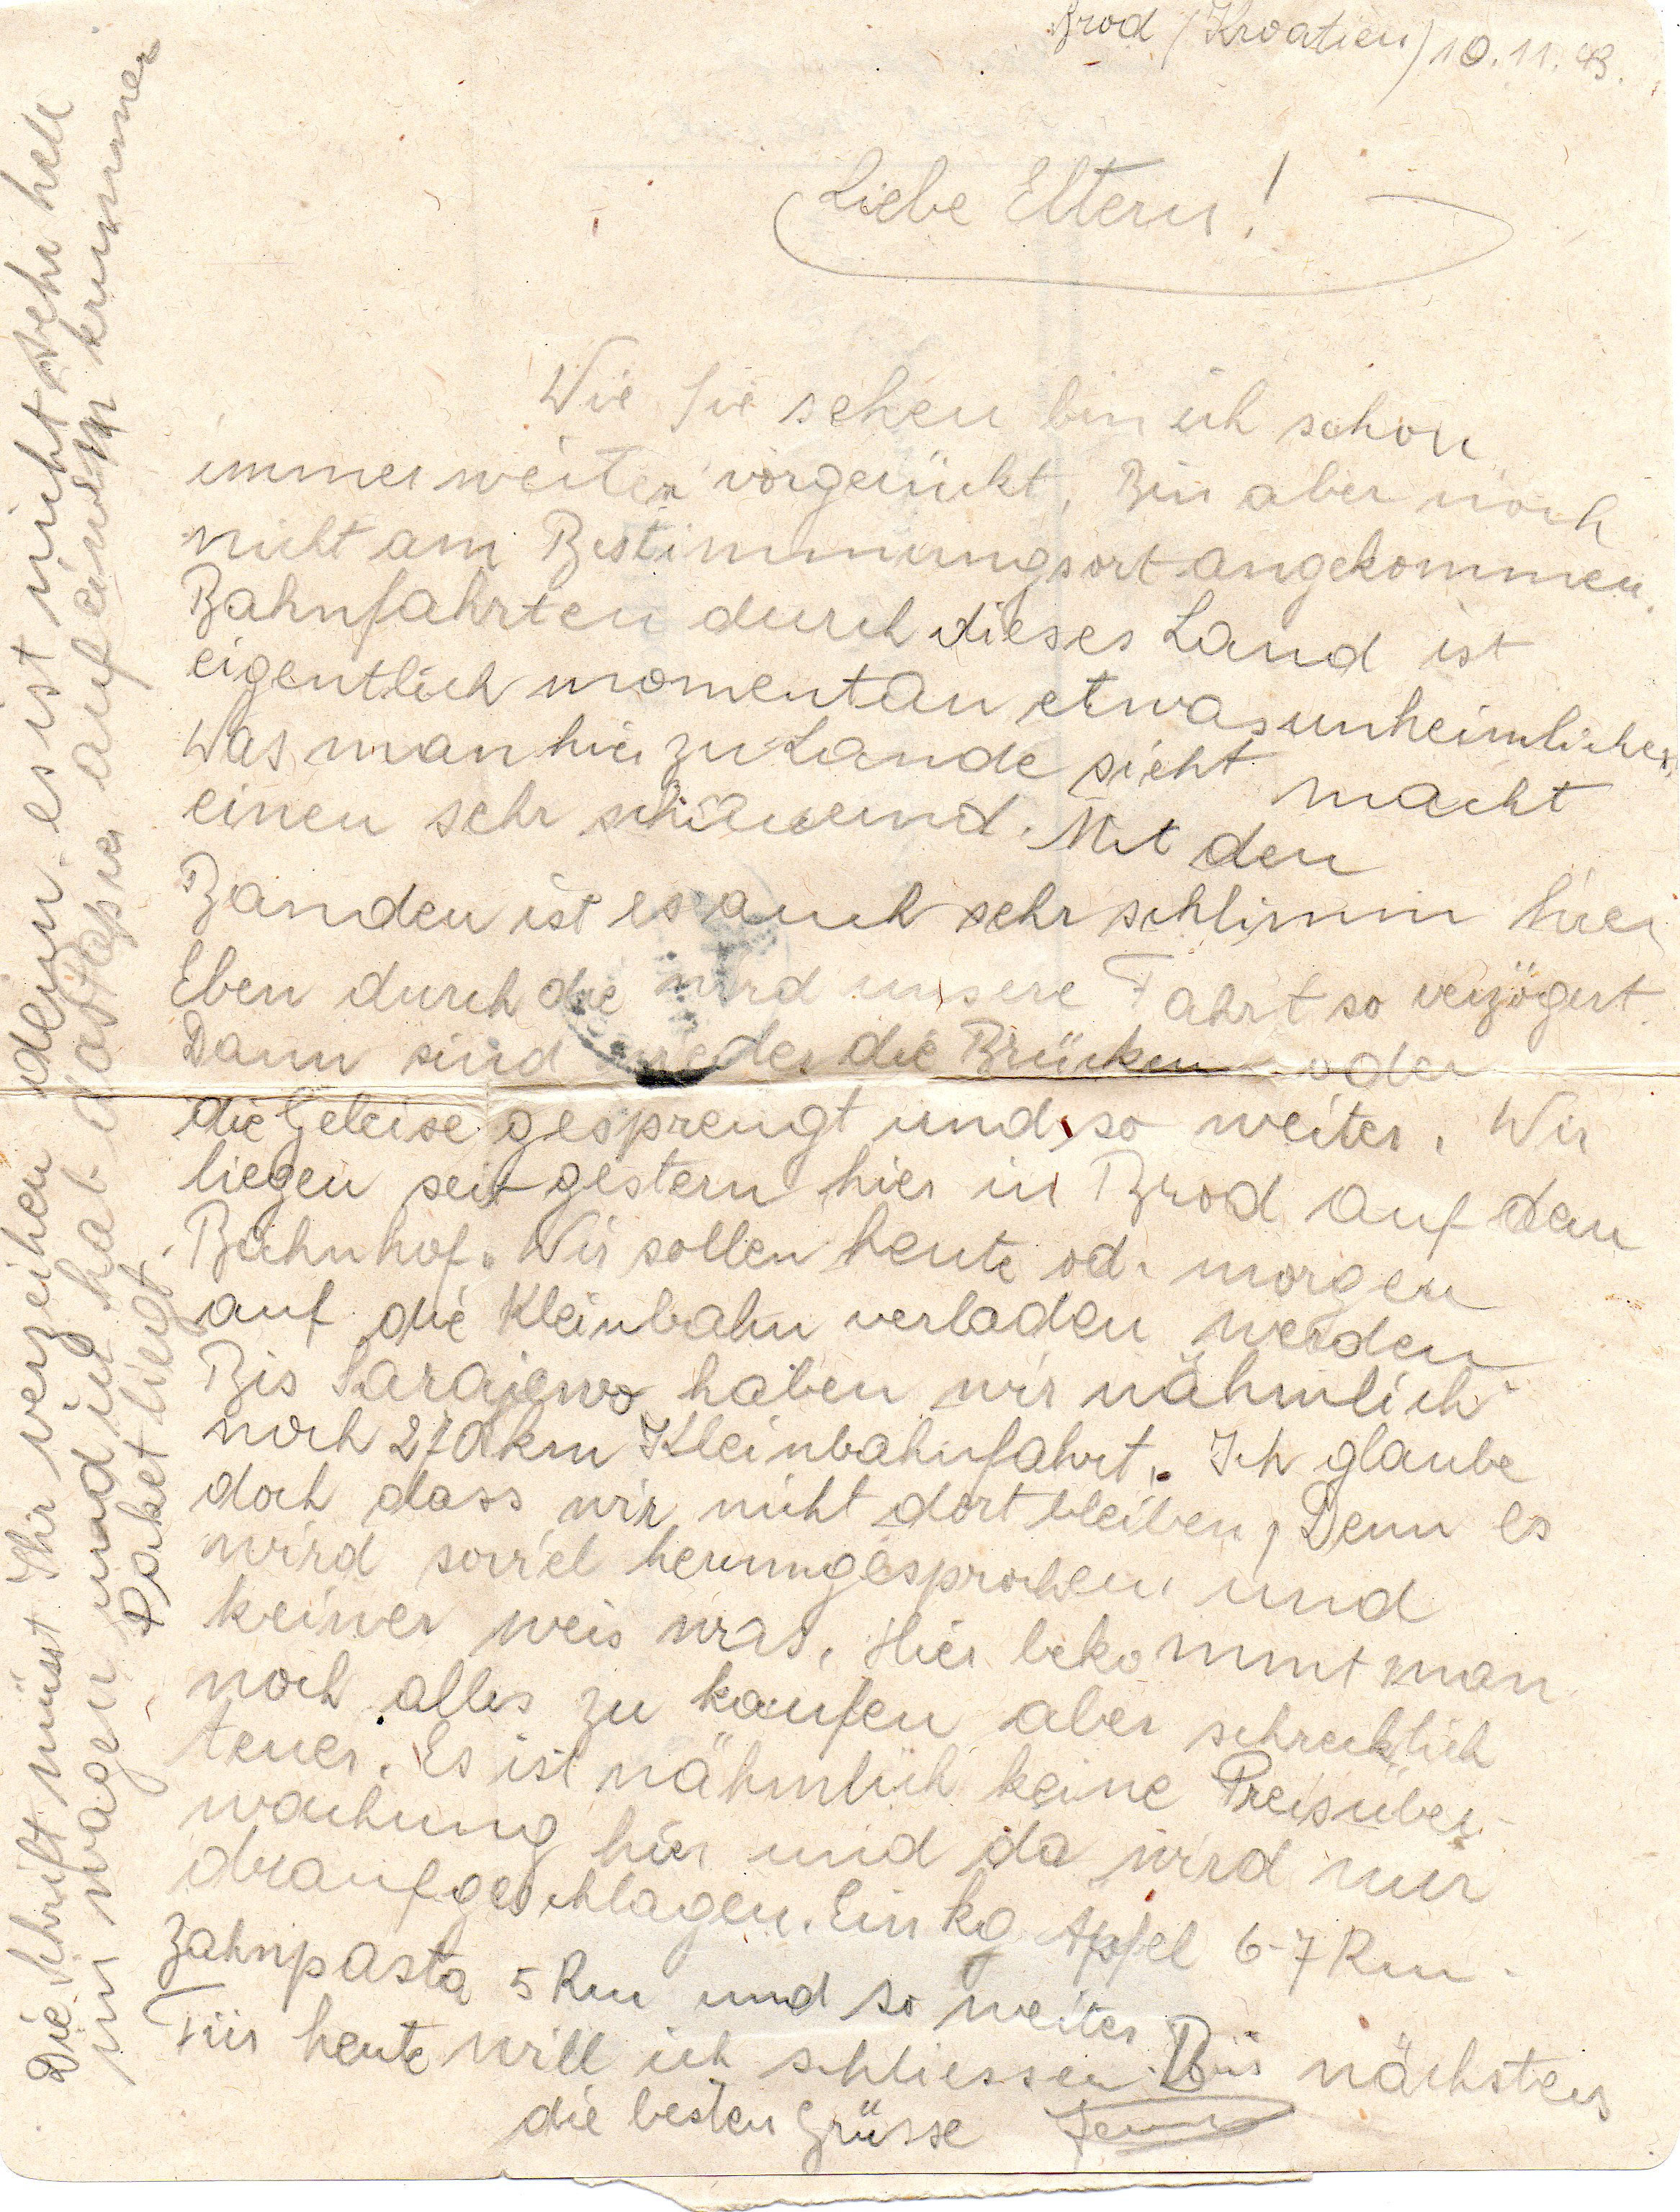 Brod (Kroatien) 10.11.43.
Liebe Eltern!
Wie Sie sehen bin ich schon
immer weiter vorgerückt. Bin aber noch
nicht am Bestimmungsort angekommen.
Bahnfahrten durch dieses Land ist
eigentlich momentan etwas unheimliches
Was man hier zu Lande sieht macht
einen sehr Mit den
Banden ist es auch sehr schlimm hier
Eben durch die wird unsere Fahrt so verzögert.
Dann sind wieder die Brücken oder
die Geleise gesprengt und so weiter. Wir
liegen seit gestern hier in Brod auf den
Bahnhof. Wir sollen heute od. morgen
auf die Kleinbahn verladen werden
Bis Sarajewo haben wir nähmlich
noch 270 km Kleinbahnfahrt. Ich glaube
doch dass wir nicht dort bleiben, Denn es
wird soviel herumgesprochen und
keiner weis was. Hier bekommt man
noch alles zu kaufen aber schrecklich
teuer. Es ist nähmlich keine Preisüber-
wachung hier und da wird nur
draufgeschlagen. Ein kg Apfel 6-7 Rm.
Zahnpasta 5 Rm und so weiter
Für heute will ich schliessen. Bis nächstens
die besten Grüsse
Die Schrift müsst Ihr verzeihen denn es ist nicht sehr hell
im wagen und ich hab das Papier auf einem krummen
Paket liegt.